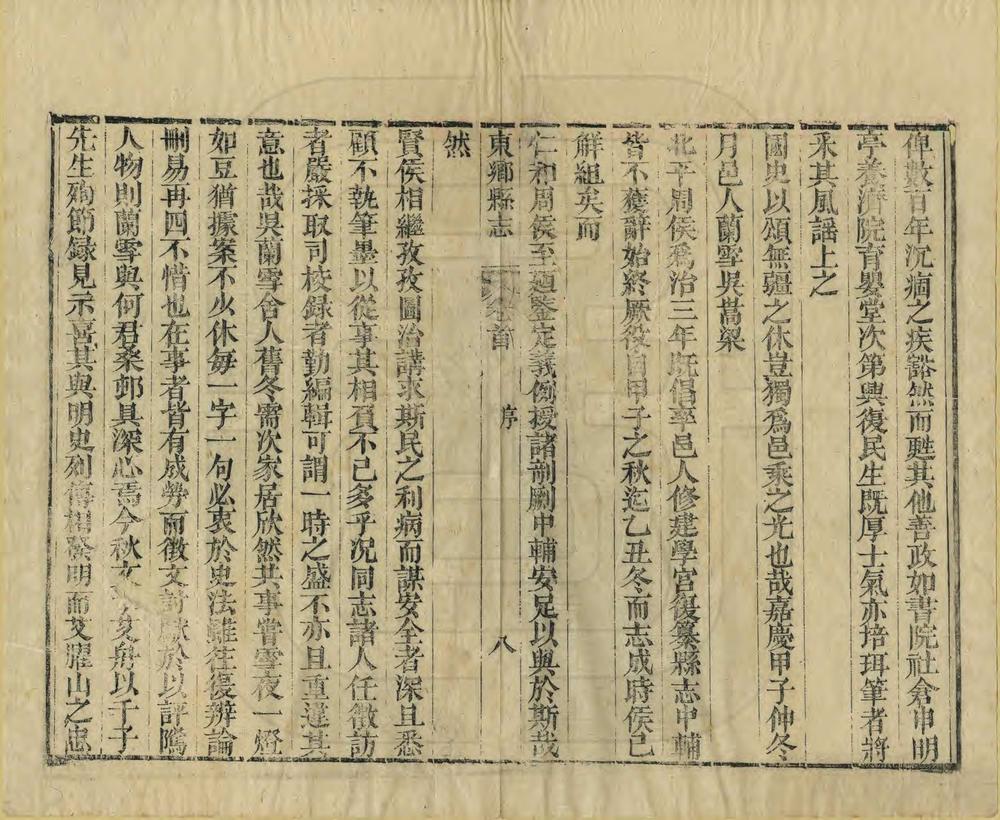 俾數百年沉痼之疾豁然而甦其他善政如書院社倉申明
亭養濟院育嬰堂次第興復民生旣厚士氣亦培珥筆者將
采其風謡上之
國史以頌無疆之休豈獨爲邑乘之光也哉嘉慶甲子仲冬
月邑人蘭雪吳嵩梁
北平周侯爲治三年旣倡率邑人修建學宮復纂縣志中輔
皆不獲辭始終厥役自甲子之秋迄乙丑冬而志成時侯已
解組矣而
仁和周侯至廼鑒定義例授諸剞劂中輔安足以與於斯哉
東鄉縣志 卷首 序 八
然
賢侯相繼孜孜圖治講求斯民之利病而謀安全者深且悉
顧不執筆墨以從事其相負不已多乎況同志諸人任徵訪
者嚴採取司校録者勤編輯可謂一時之盛不亦且重違其
意也哉吳蘭雪舍人舊冬需次家居欣然共事嘗雪夜一燈
如豆猶據案不少休每一字一句必衷於史法雖徃復辨論
刪易再四不惜也在事者皆有成勞而徵文考獻於以評隲
人物則蘭雪與何君桑邨具深心焉今秋文 艾舟以千子
先生殉節録見示喜其與明史列傳相發明而艾臞山之忠